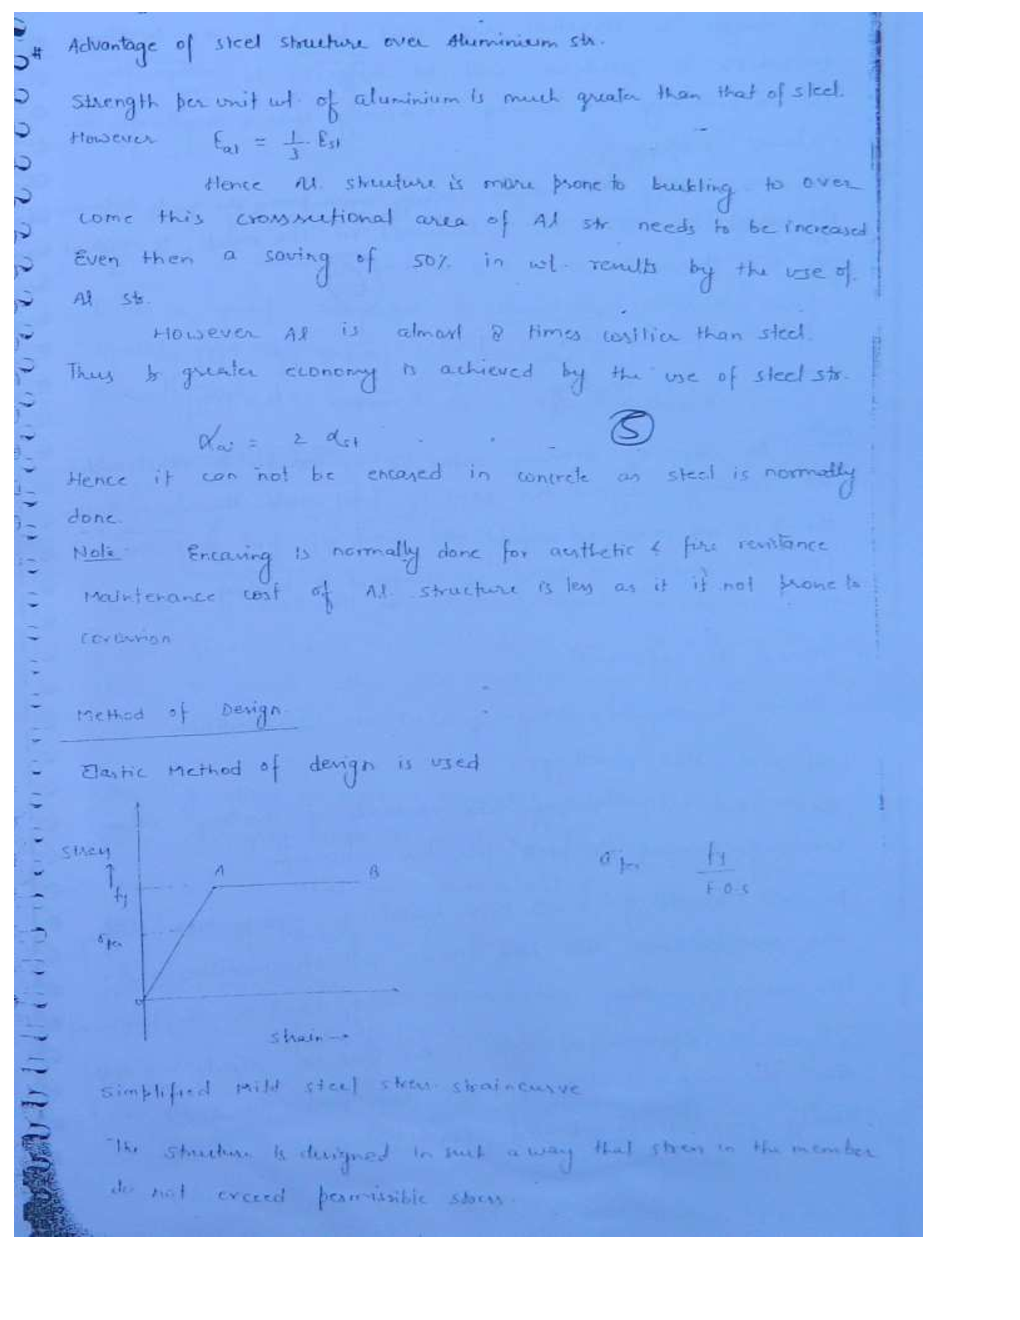 # Advantage of steel structure over Aluminium str.
Strength per unit wt. of aluminium is much greater than that of steel.
However E_al = 1/3 . E_st
Hence Al. structure is more prone to buckling to over
come this crossectional area of Al str needs to be increased
Even then a saving of 50% in wt. results by the use of
Al str.
However Al is almost 8 times costlier than steel.
Thus greater economy is achieved by the use of steel str.
5
α_al = 2 α_st
Hence it can not be encased in concrete as steel is normally
done.
Note: Encasing is normally done for aesthetic & fire resistance
Maintenance cost of Al. structure is less as it is not prone to
corrosion
Method of Design.
Elastic Method of design is used
stress
A B
fy
σ_per
σ_per fy/F.O.S
0
strain →
Simplified Mild steel stress strain curve
The structure is designed in such a way that stress in the member
do not exceed permissible stress.